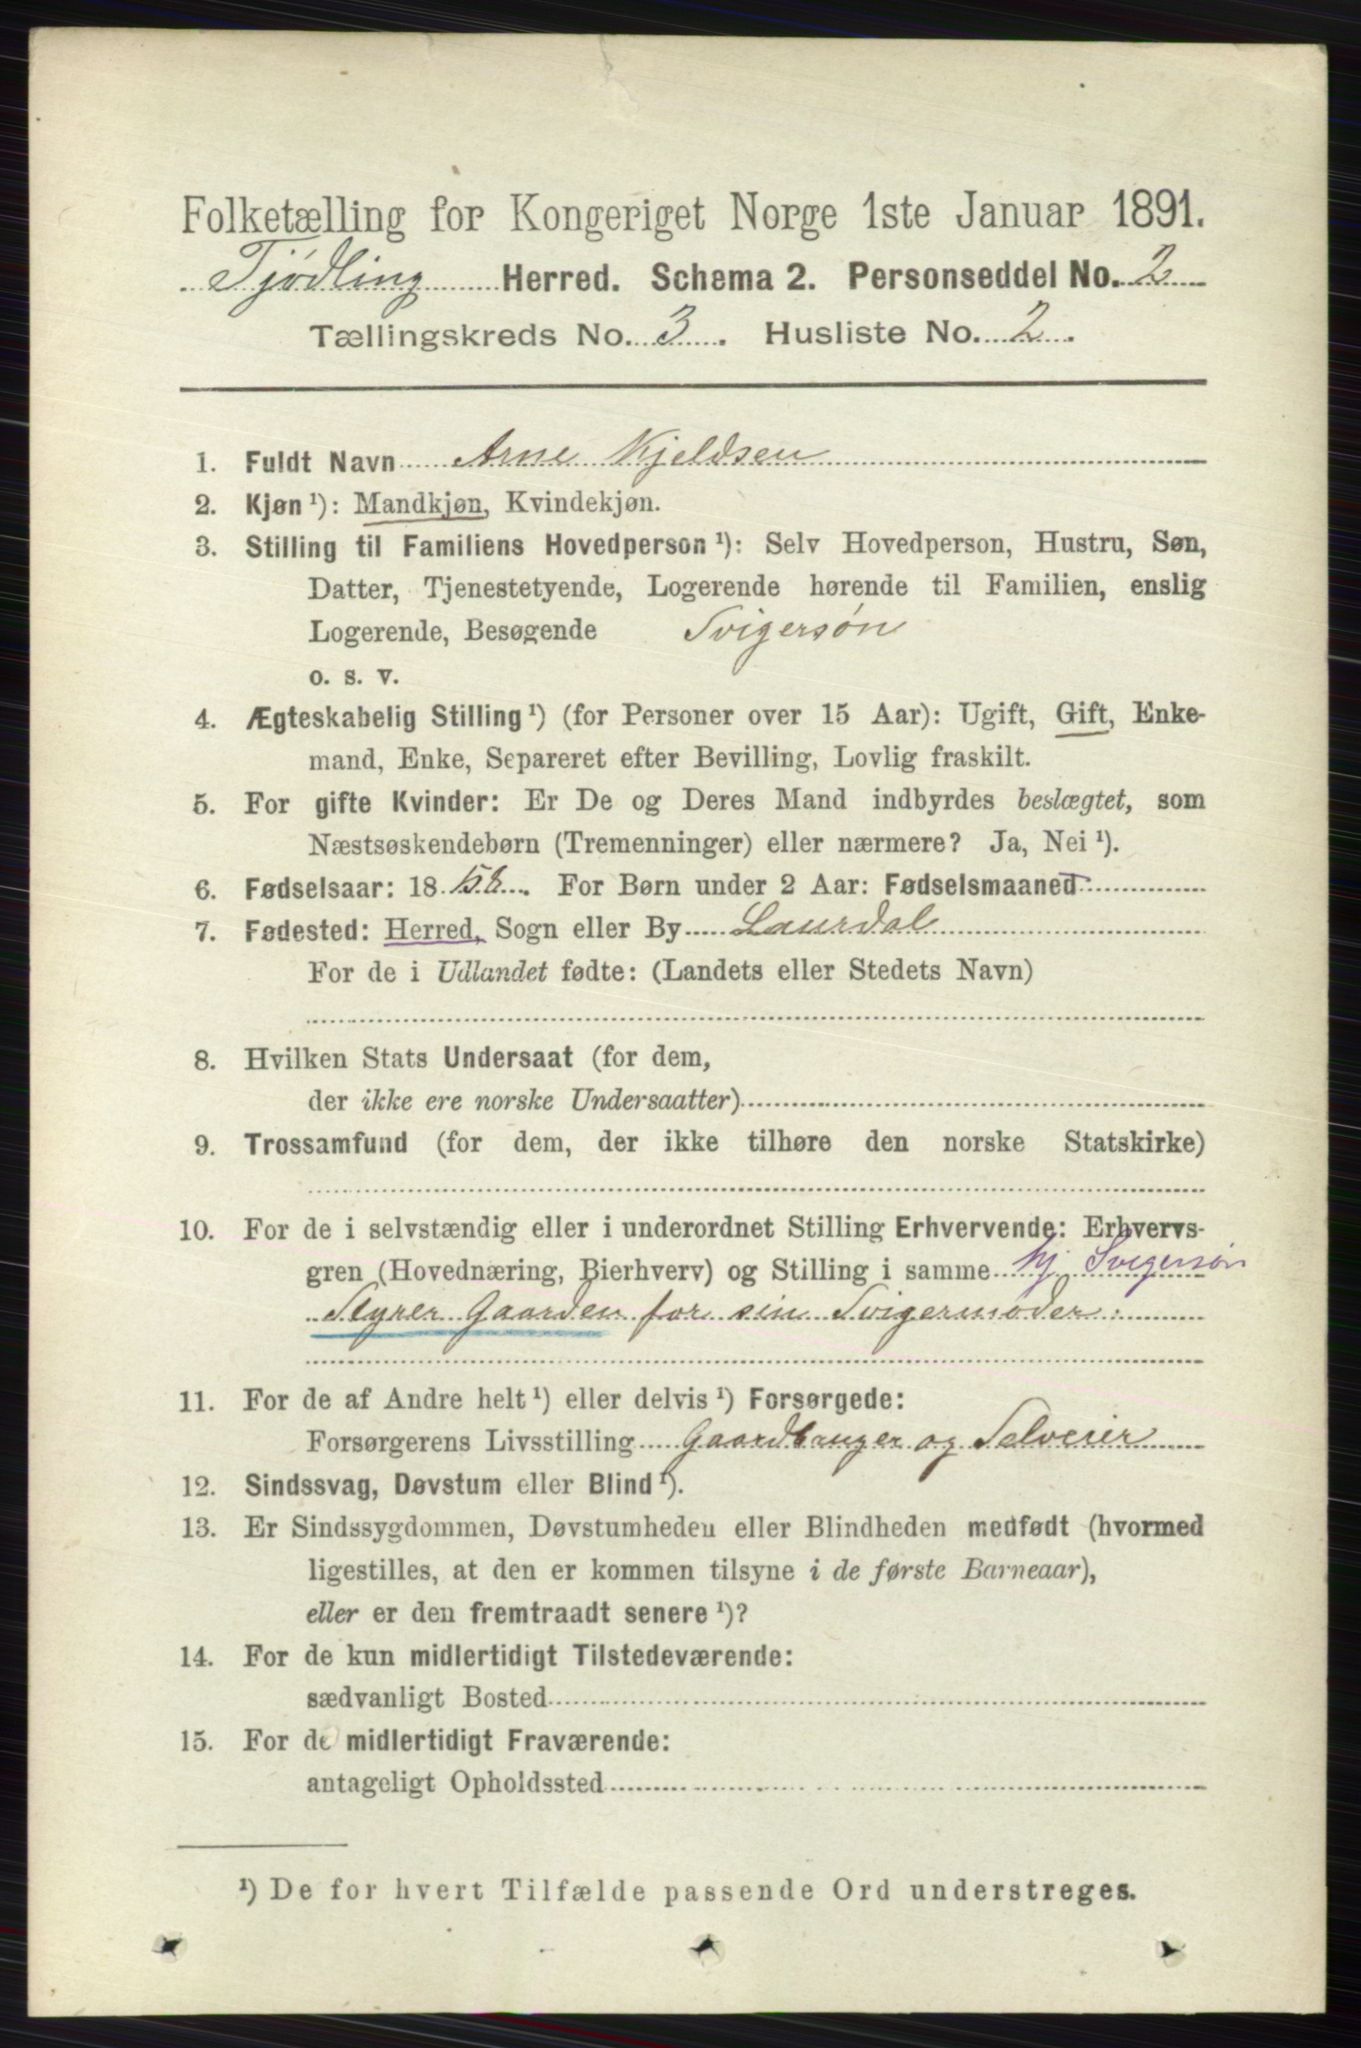 Folketælling for Kongeriget Norge 1ste Januar 1891.
Tjødling Herred. Schema 2. Personseddel No. 2
Tællingskreds No. 3. Husliste No. 2.
1. Fuldt Navn Arne Kjeldsen
2. Kjøn ¹): Mandkjøn, Kvindekjøn.
3. Stilling til Familiens Hovedperson ¹): Selv Hovedperson, Hustru, Søn,
Datter, Tjenestetyende, Logerende hørende til Familien, enslig
Logerende, Besøgende Svigersøn
o. s. v.
4. Ægteskabelig Stilling ¹) (for Personer over 15 Aar): Ugift, Gift, Enke-
mand, Enke, Separeret efter Bevilling, Lovlig fraskilt.
5. For gifte Kvinder: Er De og Deres Mand indbyrdes beslægtet, som
Næstsøskendebørn (Tremenninger) eller nærmere? Ja, Nei ¹).
6. Fødselsaar: 1858. For Børn under 2 Aar: Fødselsmaaned
7. Fødested: Herred, Sogn eller By Laurdal
For de i Udlandet fødte: (Landets eller Stedets Navn)
8. Hvilken Stats Undersaat (for dem,
der ikke ere norske Undersaatter)
9. Trossamfund (for dem, der ikke tilhøre den norske Statskirke)
10. For de i selvstændig eller i underordnet Stilling Erhvervende: Erhvervs-
gren (Hovednæring, Bierhverv) og Stilling i samme hj. Svigersøn
Styrer Gaarden for sin Svigermoder.
11. For de af Andre helt ¹) eller delvis ¹) Forsørgede:
Forsørgerens Livsstilling Gaardbruger og Selveier
12. Sindssvag, Døvstum eller Blind ¹).
13. Er Sindssygdommen, Døvstumheden eller Blindheden medfødt (hvormed
ligestilles, at den er kommen tilsyne i de første Barneaar),
eller er den fremtraadt senere ¹)?
14. For de kun midlertidigt Tilstedeværende:
sædvanligt Bosted
15. For de midlertidigt Fraværende:
antageligt Opholdssted
¹) De for hvert Tilfælde passende Ord understreges.